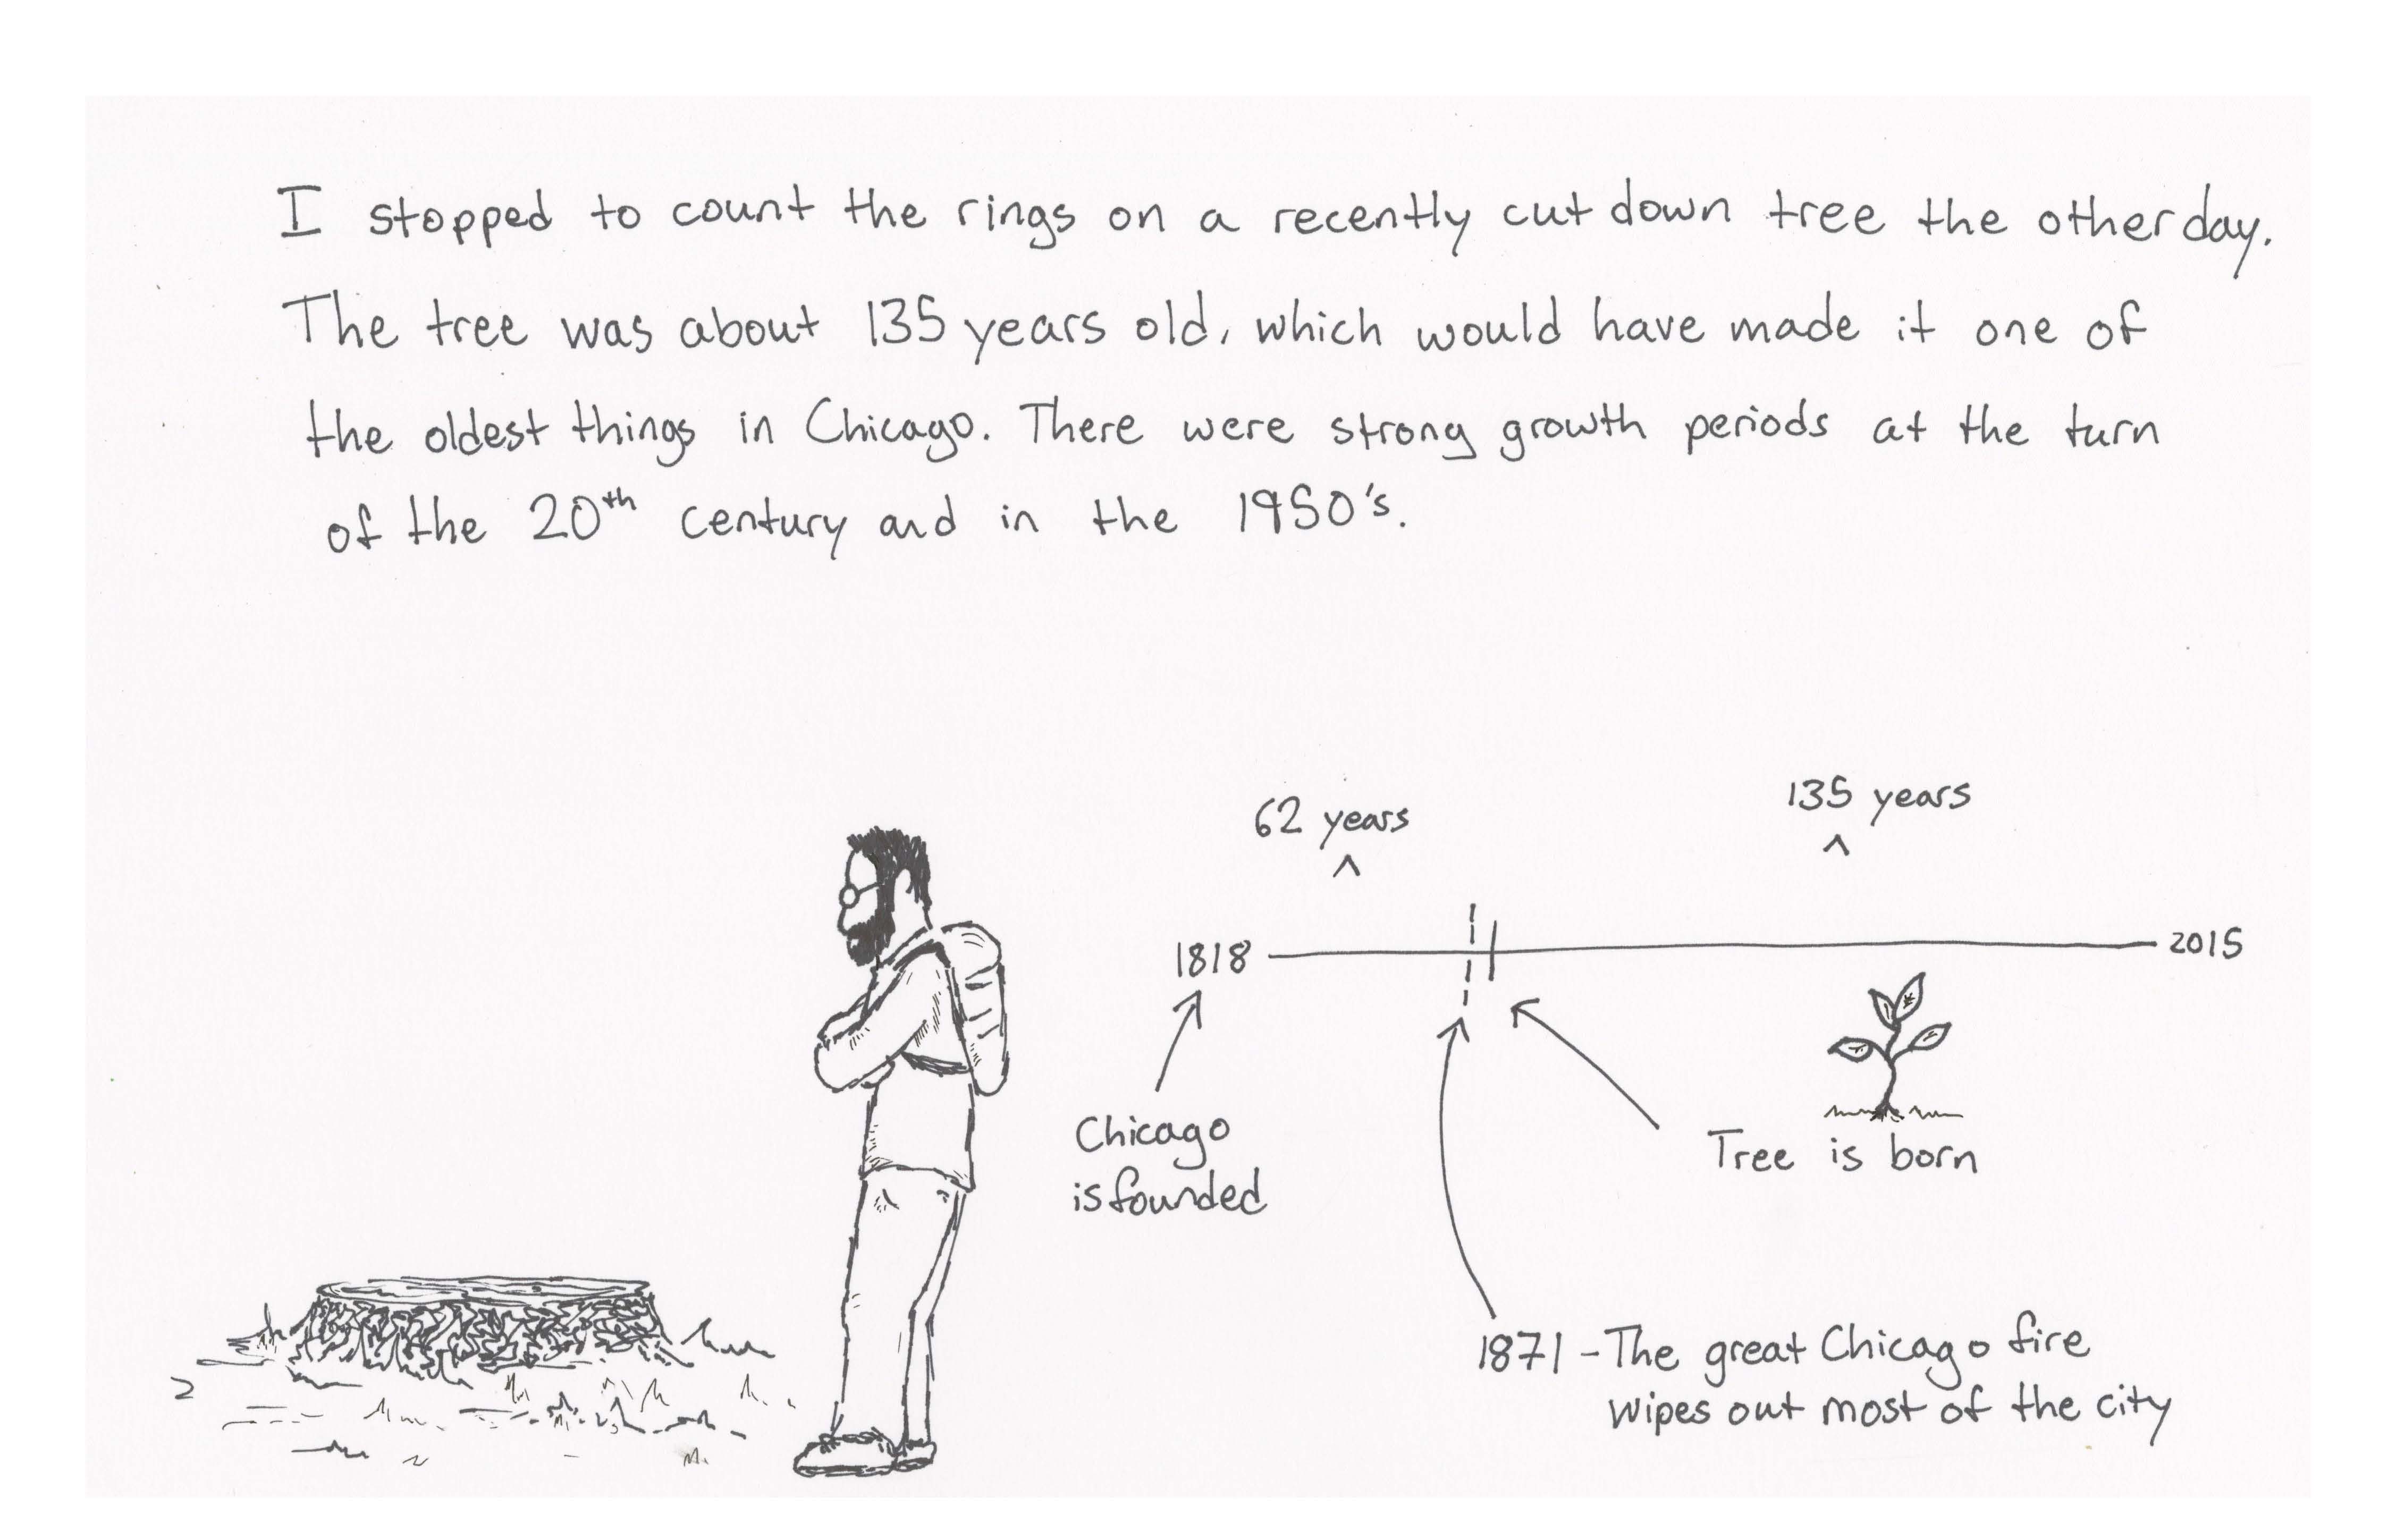 I stopped to count the rings on a recently cut down tree the other day.
The tree was about 135 years old, which would have made it one of
the oldest things in Chicago. There were strong growth periods at the turn
of the 20th century and in the 1950's.
62 years
^
135 years
^
1818
2015
Chicago
is founded
Tree is born
1871 - The great Chicago fire
wipes out most of the city